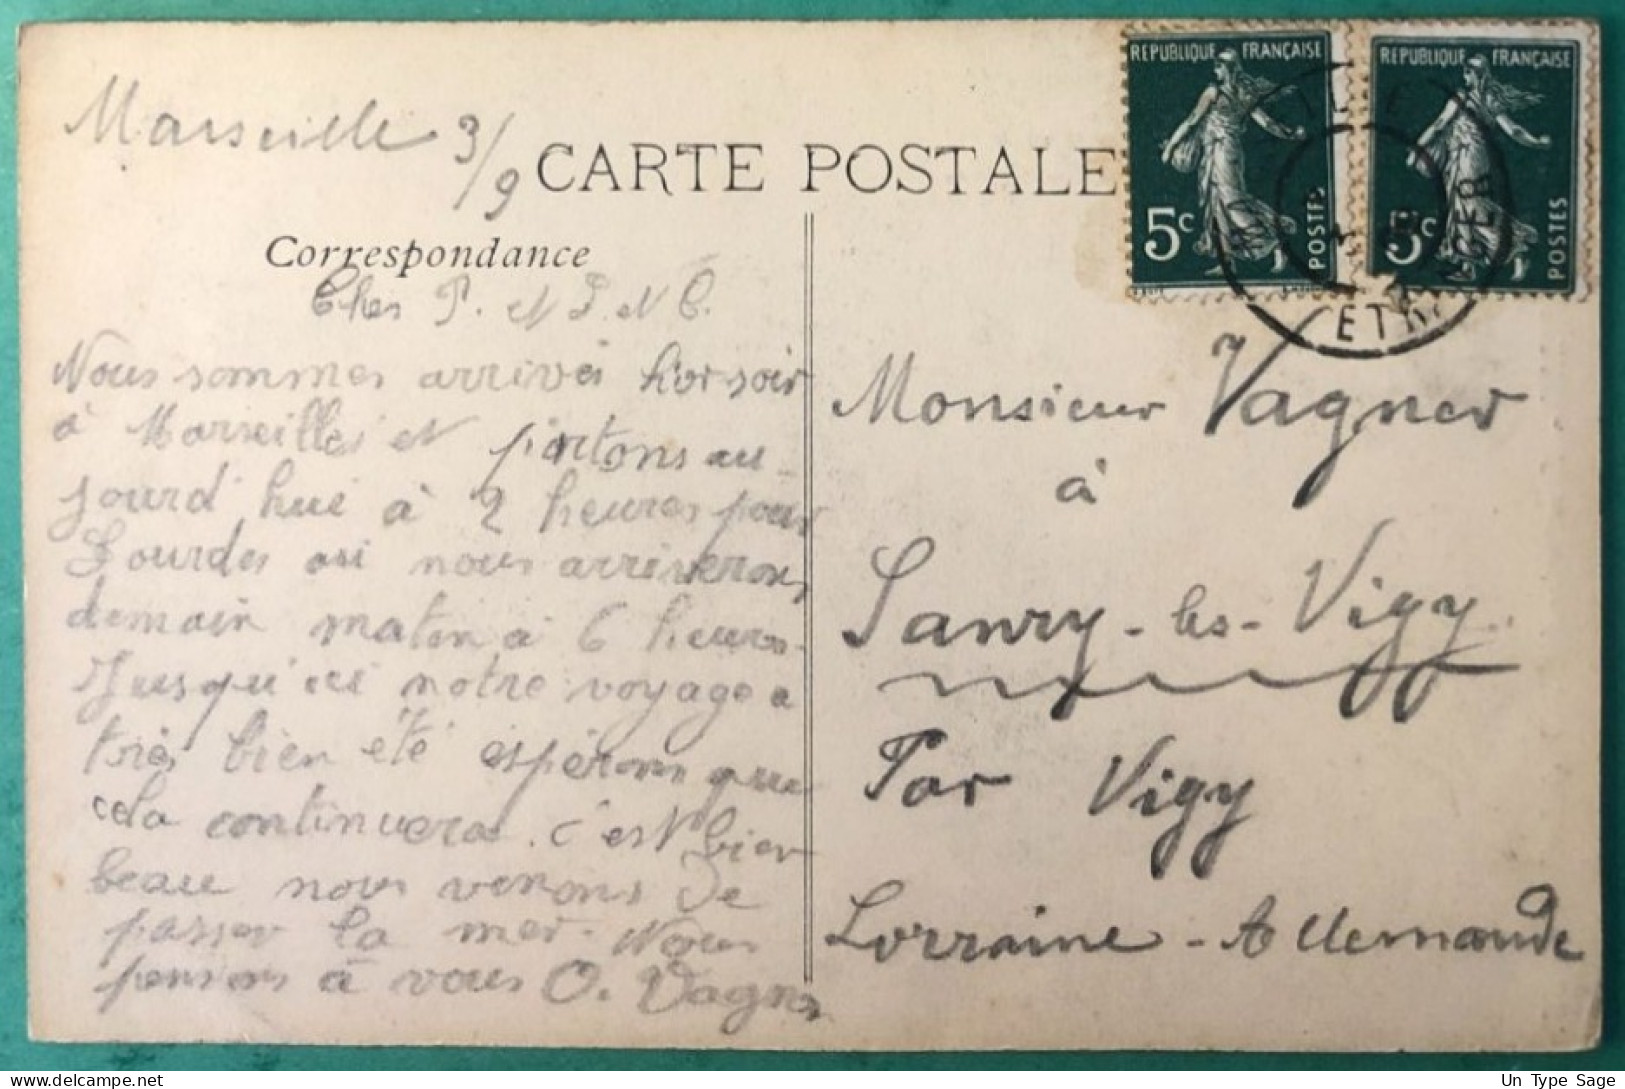 Marseille 3/9
CARTE POSTALE
Correspondance
RÉPUBLIQUE FRANÇAISE
5c
POSTES
RÉPUBLIQUE FRANÇAISE
5c
POSTES
ETR
Chers P. et
Nous sommes arrivés hier soir
à Marseilles et partons au-
jourd'hui à 2 heures pour
Lourdes où nous arriverons
demain matin à 6 heures.
Jusqu'ici notre voyage a
très bien été espérons que
cela continuera. c'est bien
beau nous venons de
passer la mer. Nous
pensons à vous O. Vagner
Monsieur Vagner
à
Sanry-les-Vigy
Par Vigy
Lorraine-Allemande
Un Type Sage